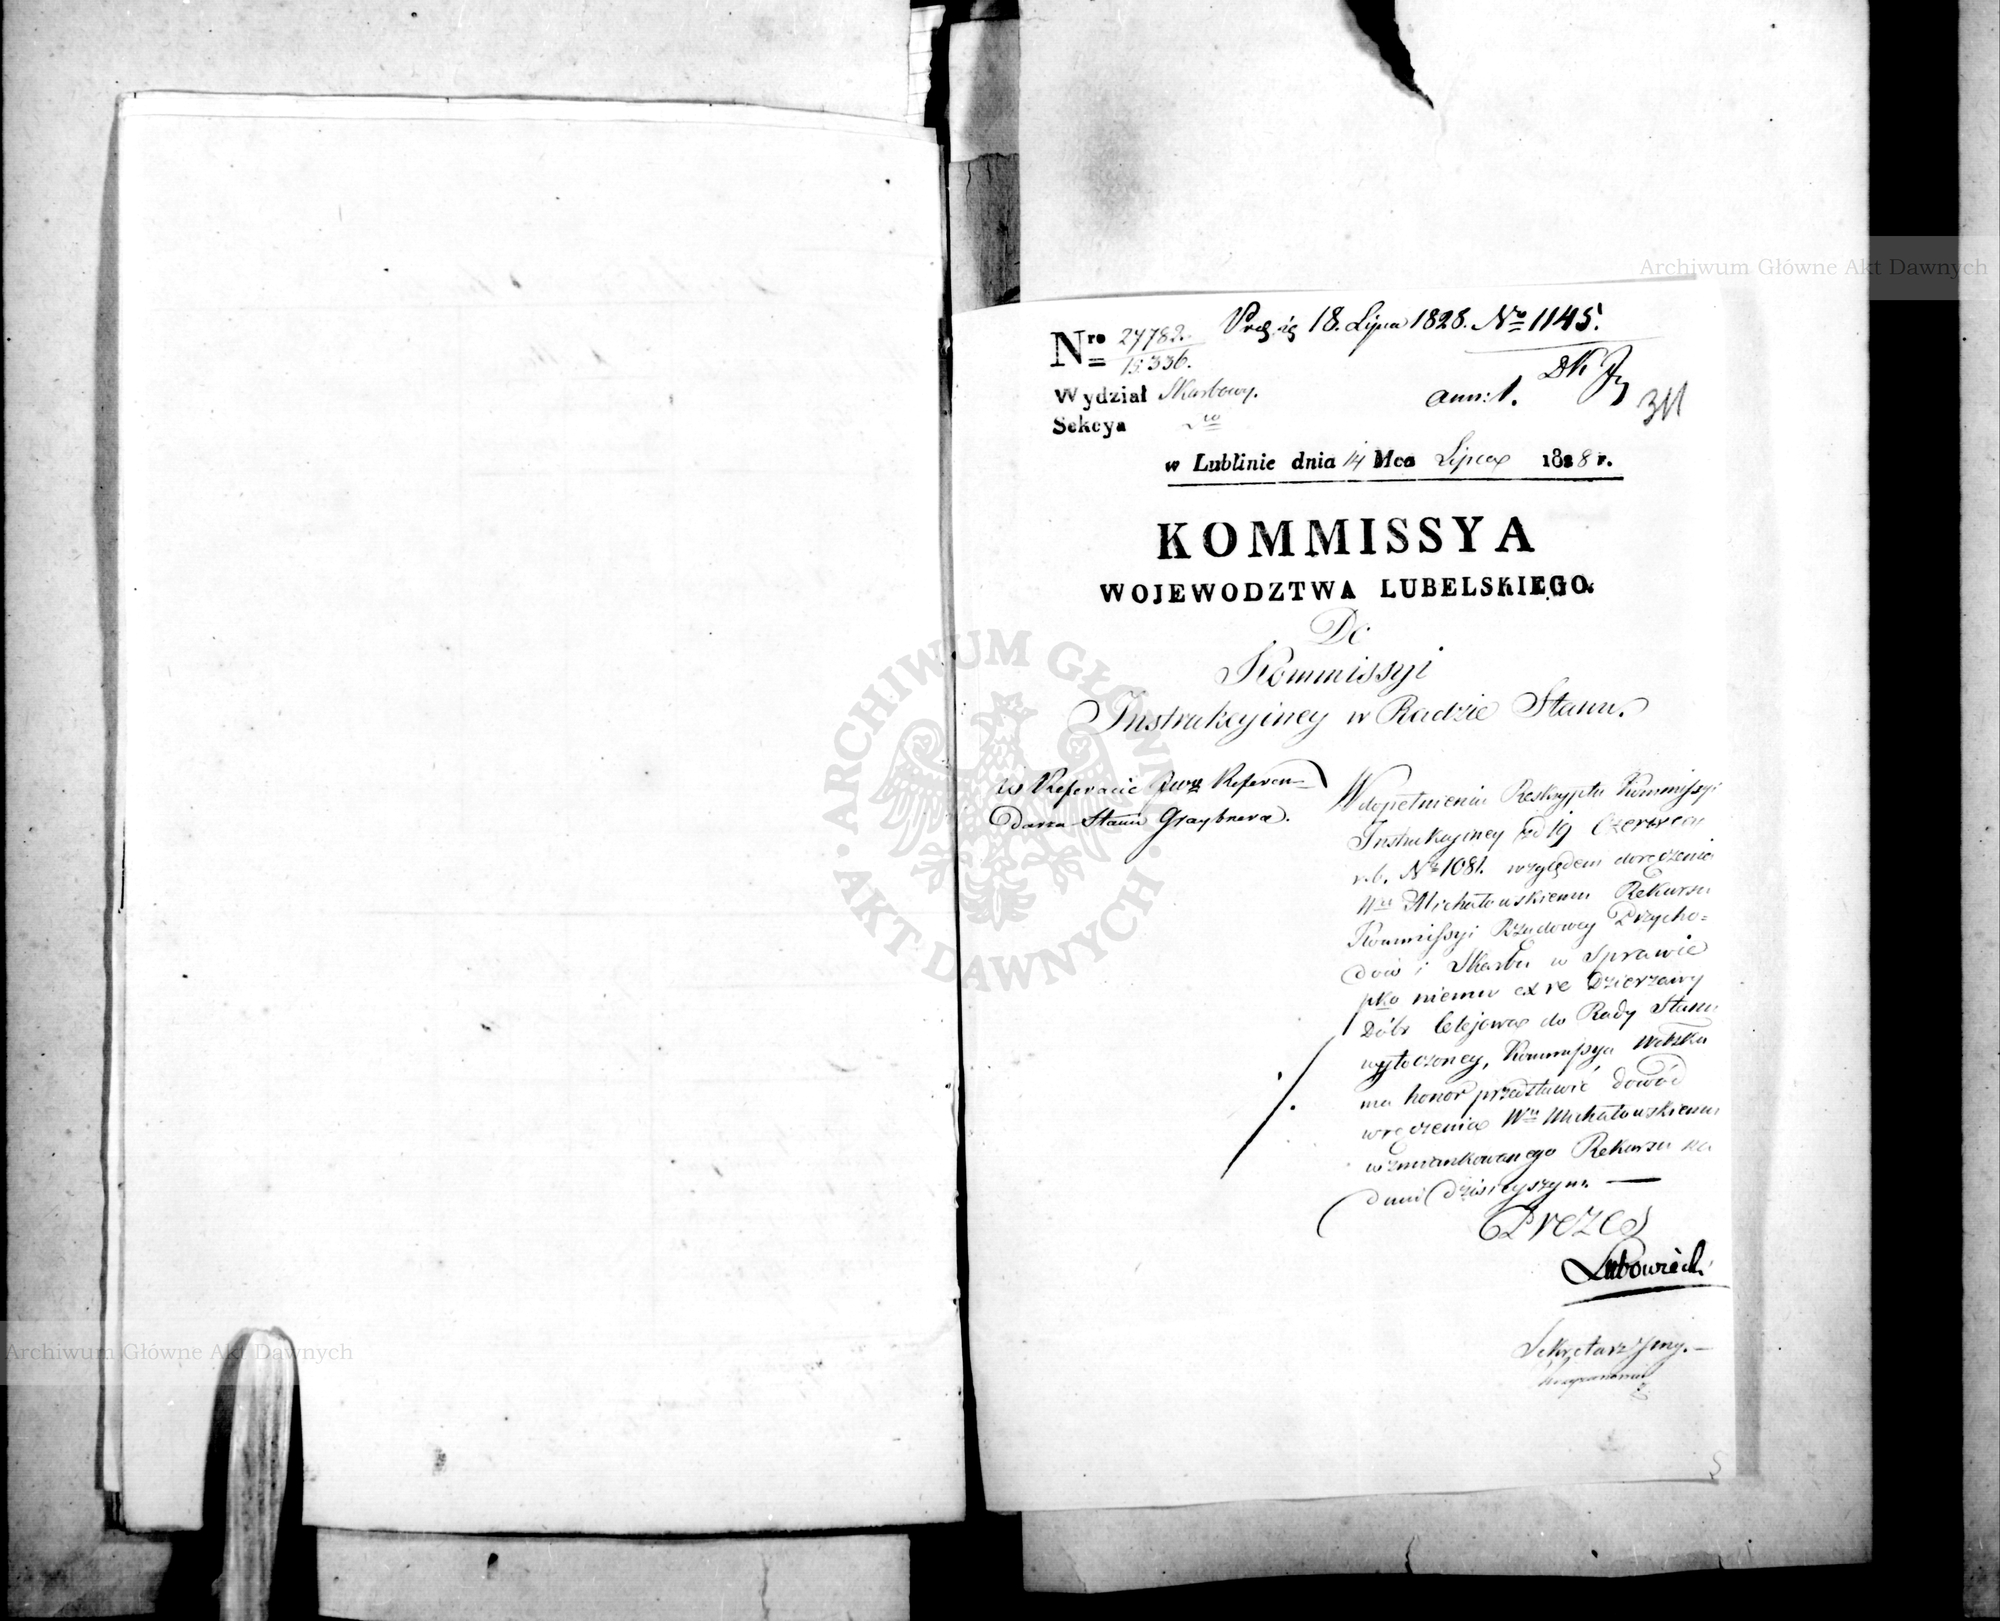 Archiwum Główne Akt Dawnych
Nro 27782.
15336.
18. Lipca 1828. No 1145.
Wydział Skarbowy.
Sekcya
ann: 1.
311
w Lublinie dnia 14 Mca Lipca 1828 r.
KOMMISSYA
WOJEWODZTWA LUBELSKIEGO.
Do
Kommissyi
Instrukcyiney w Radzie Stanu.
w Referacie Jwgo Referen-
darza Stanu Graybnera.
W dopełnieniu Reskryptu Kommissyi
Instrukcyiney z d 19 Czerwca
r.b. No 1081. względem doręczenia
Wu Michałowskiemu Rekursu
Kommissyi Rządowey Przycho=
dów i Skarbu w Sprawie
pko niemu ex re Dzierzawy
Dóbr Celejowa do Rady Stanu
wytoczoney, Kommissya Wdzka
ma honor przedstawić dowód
wręczenia Wu Michałowskiemu
wzmiankowanego Rekursu na
dniu dzisieyszym. —
Prezes
Lubowiecki
Sekretarz Jlny. —
ARCHIWUM GŁÓWNE · AKT DAWNYCH ·
Archiwum Główne Akt Dawnych